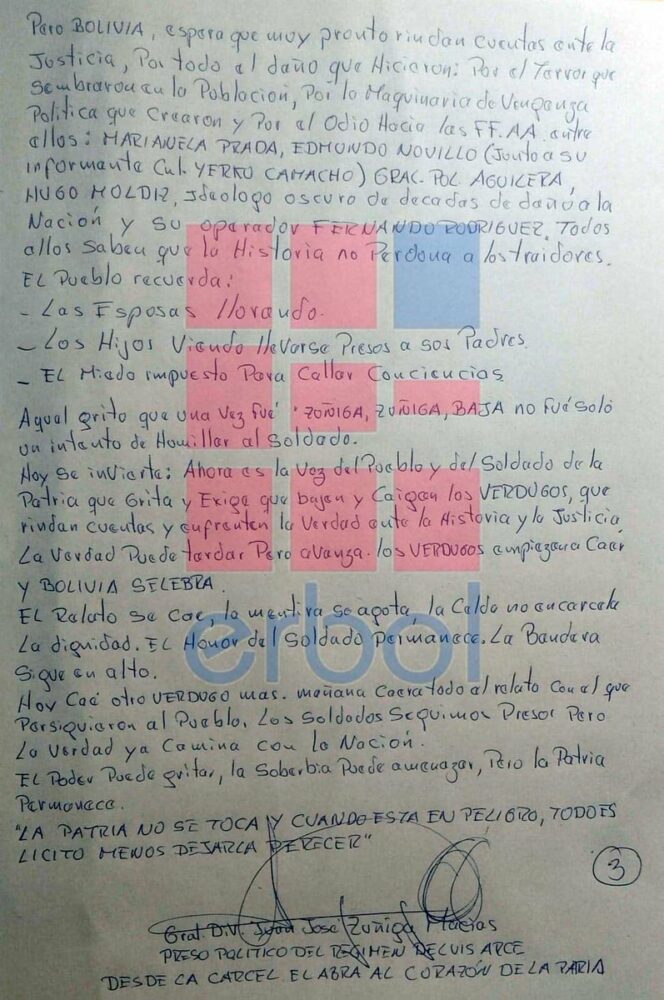 Pero BOLIVIA, espera que muy pronto rindan cuentas ante la
Justicia, Por todo el daño que Hicieron: Por el Terror que
sembraron en la Poblacion, Por la Maquinaria de Venganza
Politica que Crearon y Por el Odio Hacia las FF.AA. entre
ellos: MARIANELA PRADA, EDMUNDO NOVILLO (Junto a su
informante Cnl. YERKO CAMACHO) GRAL. POL. AGUILERA,
HUGO MOLDIZ, Ideologo oscuro de decadas de daño a la
Nación y su operador FERNANDO RODRIGUEZ. Todos
ellos saben que la Historia no Perdona a los traidores.
EL Pueblo recuerda:
- Las Esposas llorando.
- Los Hijos Viendo llevarse Presos a sos Padres.
- EL Miedo impuesto Para Callar Conciencias
Aquel grito que una Vez fué "ZUÑIGA, ZUÑIGA, BAJA no fué Soló
un intento de Homillar al Soldado.
Hoy Se invierte: Ahora es la Voz del Pueblo y del Soldado de la
Patria que Grita y Exige que bajen y Caigan los VERDUGOS, que
rindan cuentas y enfrenten la Verdad ante la Historia y la Justicia,
La Verdad Puede tardar Pero avanza. los VERDUGOS empiezan a Caer
Y BOLIVIA SELEBRA.
EL Relato Se Cae, la mentira se agota, la Celda no encarcela
La dignidad. EL Honor del Soldado Permanece. La Bandera
Sigue en alto.
Hoy Caé otro VERDUGO mas. mañana Caera todo el relato Con el que
Persiguieron al Pueblo. Los Soldados Seguimos Presos Pero
La Verdad ya Camina con la Nación.
EL Poder Puede gritar, la Soberbia Puede amenazar, Pero la Patria
Permanece.
"LA PATRIA NO SE TOCA Y CUANDO ESTA EN PELIGRO, TODO ES
LICITO MENOS DEJARLA PERECER"
3
Gral. Div. Juan José Zuñiga Macias
PRESO POLITICO DEL REGIMEN DE LUIS ARCE
DESDE LA CARCEL EL ABRA AL CORAZÓN DE LA PARIA
erbol